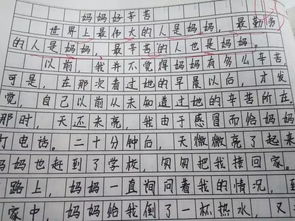 妈妈好辛苦
世界上最伟大的人是妈妈,最勤劳
的人是妈妈,最辛苦的人也是妈妈。
以前,我并不觉得妈妈有多么辛苦
可是,在那次看过她的早晨以后,才发
觉,自己以前从未知道过她的辛苦所在。
那时,天还未亮,我由于感冒而给妈妈
打电话。二十分钟后,天微微亮了起来
妈妈也赶到了学校,匆匆把我接回家。
路上,妈妈一直询问着我的情况,到
家中,妈妈给我倒了一杯热水,又